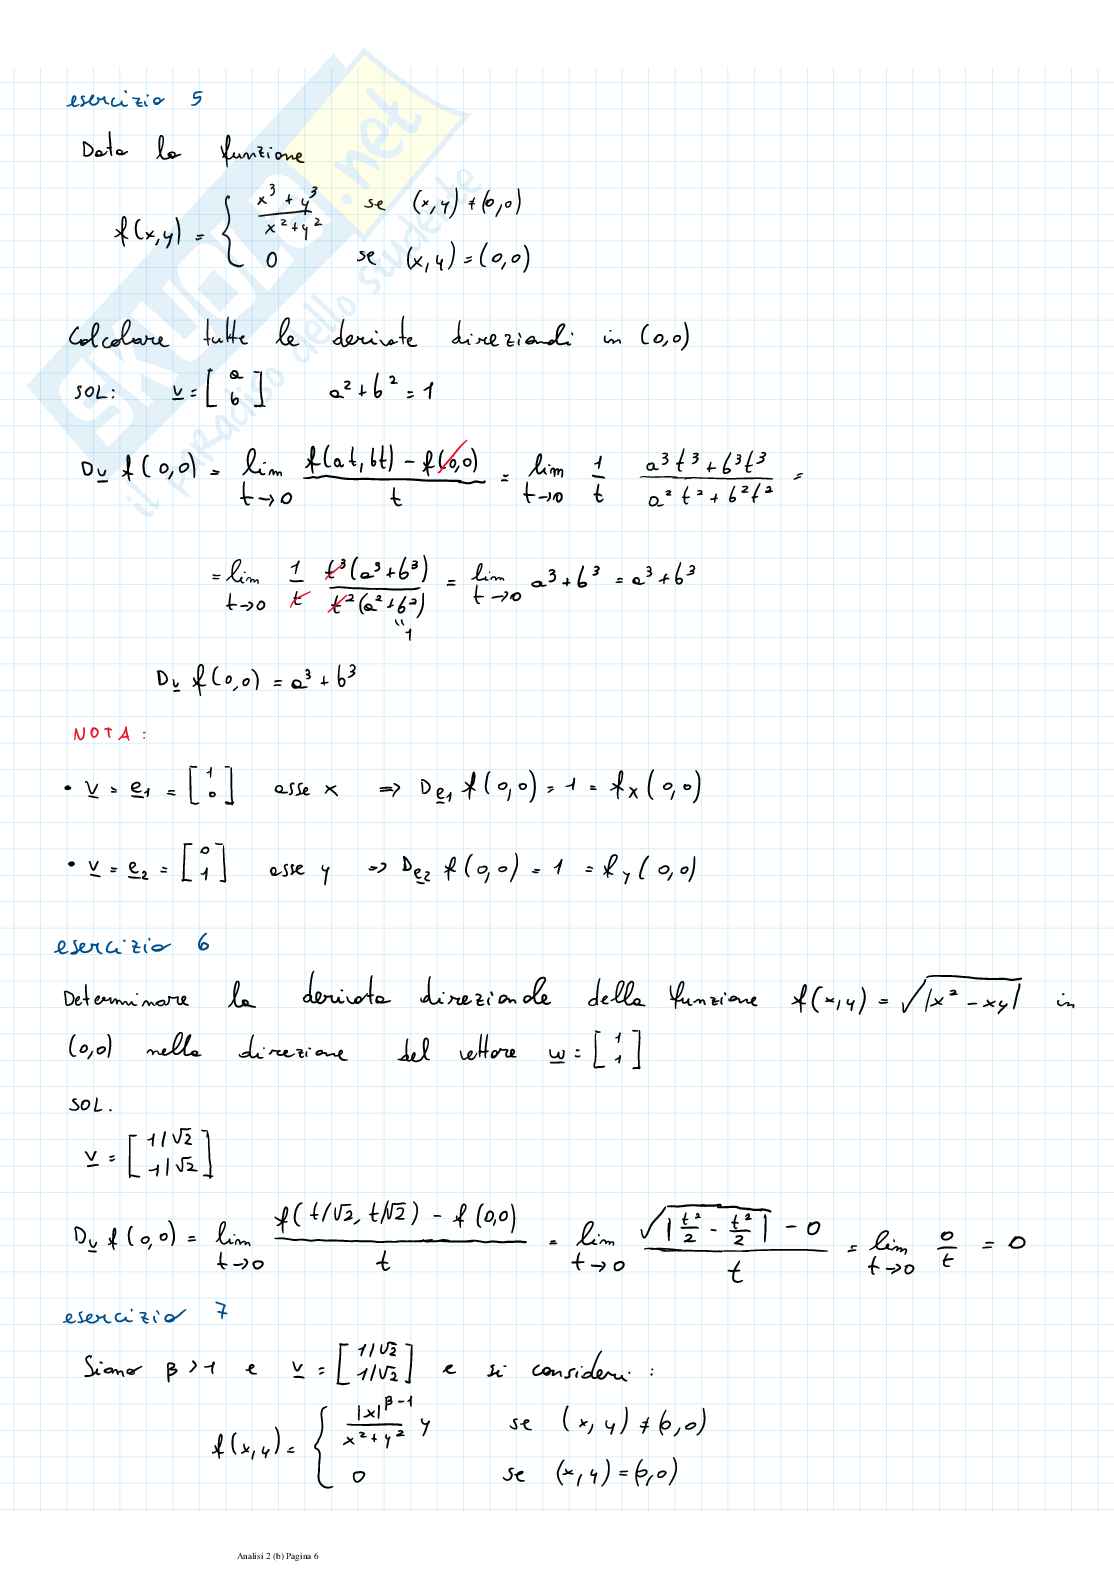 esercizio 5
Data la funzione
f(x,y) = { (x³ + y³)/(x² + y²) se (x,y) ≠ (0,0)
0 se (x,y) = (0,0)
Calcolare tutte le derivate direzionali in (0,0)
SOL: v = [a b] a² + b² = 1
Dv f(0,0) = lim t→0 (f(at, bt) - f(0,0))/t = lim t→0 1/t (a³t³ + b³t³)/(a²t² + b²t²) =
= lim t→0 1/t t³(a³+b³)/t²(a²+b²) = lim t→0 a³+b³ = a³+b³
"1
Dv f(0,0) = a³ + b³
NOTA:
• v = e1 = [1 0] asse x => De1 f(0,0) = 1 = fx(0,0)
• v = e2 = [0 1] asse y => De2 f(0,0) = 1 = fy(0,0)
esercizio 6
Determinare la derivata direzionale della funzione f(x,y) = √|x² - xy| in
(0,0) nella direzione del vettore w = [1 1]
SOL.
v = [1/√2 1/√2]
Dv f(0,0) = lim t→0 (f(t/√2, t/√2) - f(0,0))/t = lim t→0 (√|t²/2 - t²/2| - 0)/t = lim t→0 0/t = 0
esercizio 7
Siano β > 1 e v = [1/√2 1/√2] e si consideri:
f(x,y) = { |x|^(β-1)/(x² + y²) y se (x,y) ≠ (0,0)
0 se (x,y) = (0,0)
Analisi 2 (b) Pagina 6
SKUOLA.net
il paradiso dello studente